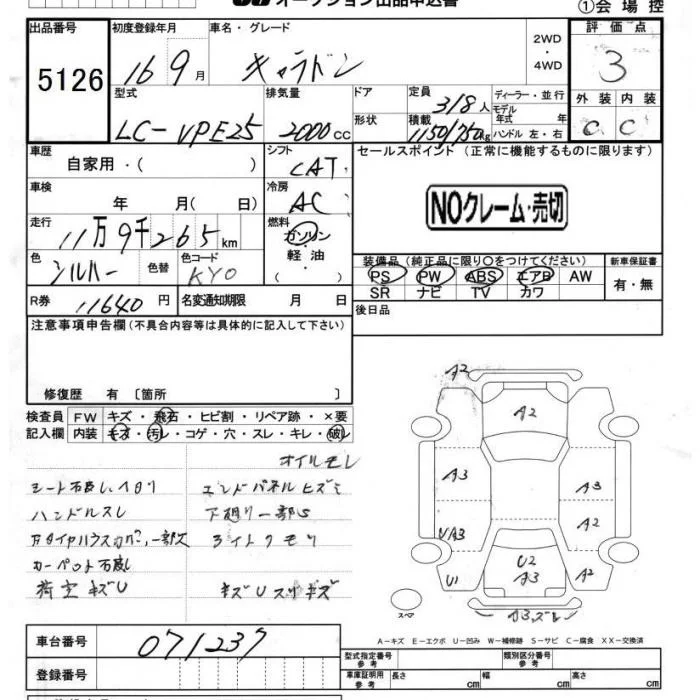 オークション出品申込書
①会場控
出品番号 初度登録年月 車名・グレード 2WD・4WD 評価点
5126 16 9月 キャラバン 3
型式 排気量 ドア 定員 3/8人 ディーラー・並行 外装 内装
LC-VPE25 2000cc 形状 積載 1150/750kg モデル年式 年 ハンドル 左・右 C C
車歴 シフト セールスポイント (正常に機能するものに限ります)
自家用・( ) CAT
車検 冷房
年 月( 日) AC NOクレーム・売切
走行 燃料
11万9千265km ガソリン・軽油・( )
装備品 (純正品に限り○をつけてください) 新車保証書
色 色替 色コード PS PW ABS エアB AW 有・無
シルバー KY0 SR ナビ TV カワ
R券 11640円 名変通知期限 月 日 後日品
注意事項申告欄(不具合内容等は具体的に記入して下さい)
修復歴 有 〔箇所 〕
検査員 FW キズ・飛石・ヒビ割・リペア跡・×要
記入欄 内装 キズ・汚レ・コゲ・穴・スレ・キレ・破レ
オイルモレ
エンドパネルヒズミ
ハンドルスレ 下廻り一部S
ライトクモリ
荷室キズU キズUスリキズ
A2
A2
A3 A3
U/A3 A2
U2
A3
U1 A2
スペア
A-キズ E-エクボ U-凹み W-補修跡 S-サビ C-腐食 XX-交換済
車台番号 071237
型式指定番号 参考 類別区分番号 参考
登録番号
車庫証明用 参考 長さ cm 幅 cm 高さ cm